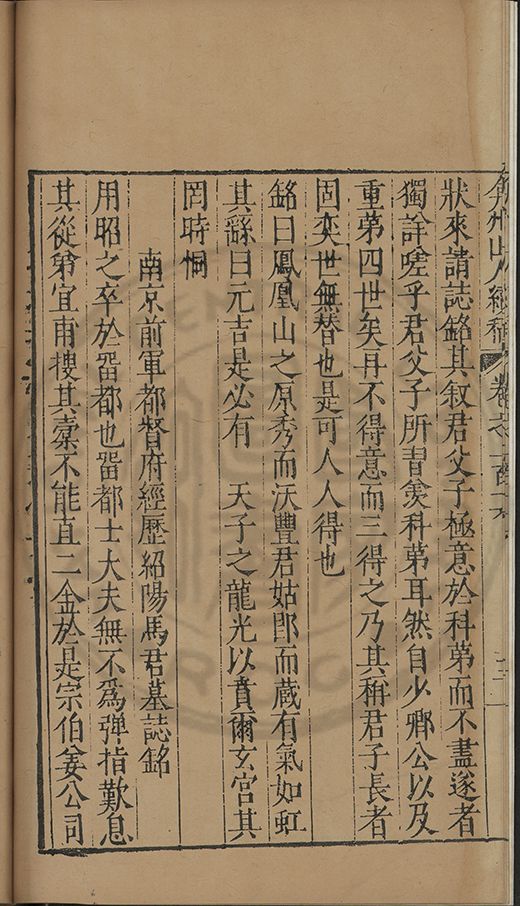 弇州山人續稿 卷之一百十六
狀來請誌銘其敘君父子極意於科第而不盡遂者
獨詳嗟乎君父子所冐羨科第耳然自少卿公以及
重第四世矣再不得意而三得之乃其稱君子長者
固奕世無替也是可人人得也
銘曰鳳凰山之原秀而沃豐君姑郎而蔵有氣如虹
其繇曰元吉是必有 天子之龍光以賁爾玄宮其
罔時恫
南京前軍都督府經歷紹陽馬君墓誌銘
用昭之卒於畱都也畱都士大夫無不爲彈指歎息
其從弟宜甫搜其槖不能直二金於是宗伯姜公司